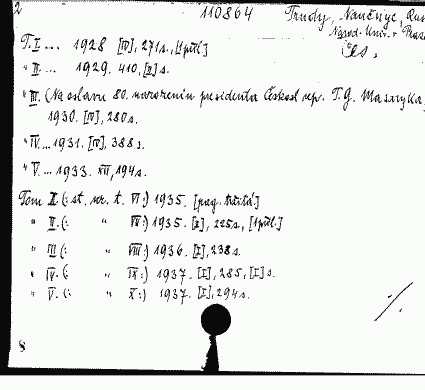 2 110864 Trudy, Naučnye, Rus
Národ. Univ. v Praze
Čes.
T. I ... 1928 [IV], 271 s., [1 příl.]
" II ... 1929. 410, [II] s.
" III. (Na oslavu 80. narozenin presidenta Českosl. rep. T. G. Masaryka,
1930. [IV], 280 s.
" IV. ... 1931. [IV], 388 s.
" V. ... 1933. XII, 194 s.
Tom I. (: st. ser. t. VI :) 1935. [pag. různá]
" II. (: " VII :) 1935. [I], 225 s., [1 příl.]
" III (: " VIII :) 1936. [I], 238 s.
" IV. (: " IX :) 1937. [I], 285, [I] s.
" V. (: " X :) 1937. [I], 294 s.